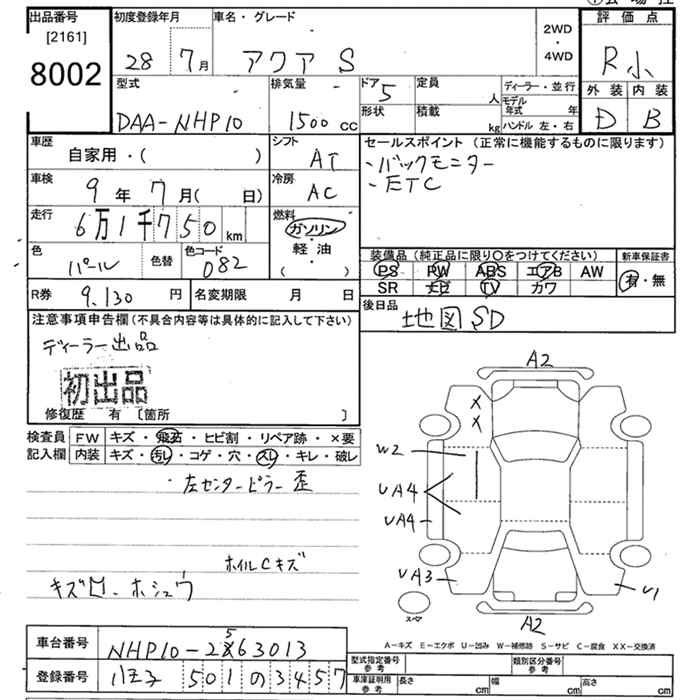 出品番号 初度登録年月 車名・グレード 2WD・4WD 評価点
[2161]
8002 28 7月 アクア S R小
型式 排気量 ドア 5 定員 人 ディーラー・並行 外装 内装
DAA-NHP10 1500cc 形状 積載 kg モデル年式 年 ハンドル 左・右 D B
車歴 自家用・( ) シフト AT セールスポイント (正常に機能するものに限ります)
・バックモニター
・ETC
車検 9年7月( 日) 冷房 AC
走行 6万1千750km 燃料 ガソリン 軽油 ( )
色 パール 色替 色コード 082 装備品 (純正品に限り○をつけてください) 新車保証書
PS PW ABS エアB AW 有・無
SR ナビ TV カワ
R券 9,130円 名変期限 月 日 後日品 地図SD
注意事項申告欄(不具合内容等は具体的に記入して下さい)
ディーラー出品
初出品
修復歴 有 〔箇所 〕
検査員 FW キズ・飛石・ヒビ割・リペア跡・×要
記入欄 内装 キズ・汚レ・コゲ・穴・スレ・キレ・破レ
・左センターピラー歪
ホイルCキズ
キズ凹.ホシュウ
A2
X
X
W2
UA4
UA4
UA3
U1
スペア
A2
A-キズ E-エクボ U-凹み W-補修跡 S-サビ C-腐食 XX-交換済
車台番号 NHP10-2563013
登録番号 八王子 501 の 3457
型式指定番号 参考 類別区分番号 参考
車庫証明用 参考 長さ cm 幅 cm 高さ cm